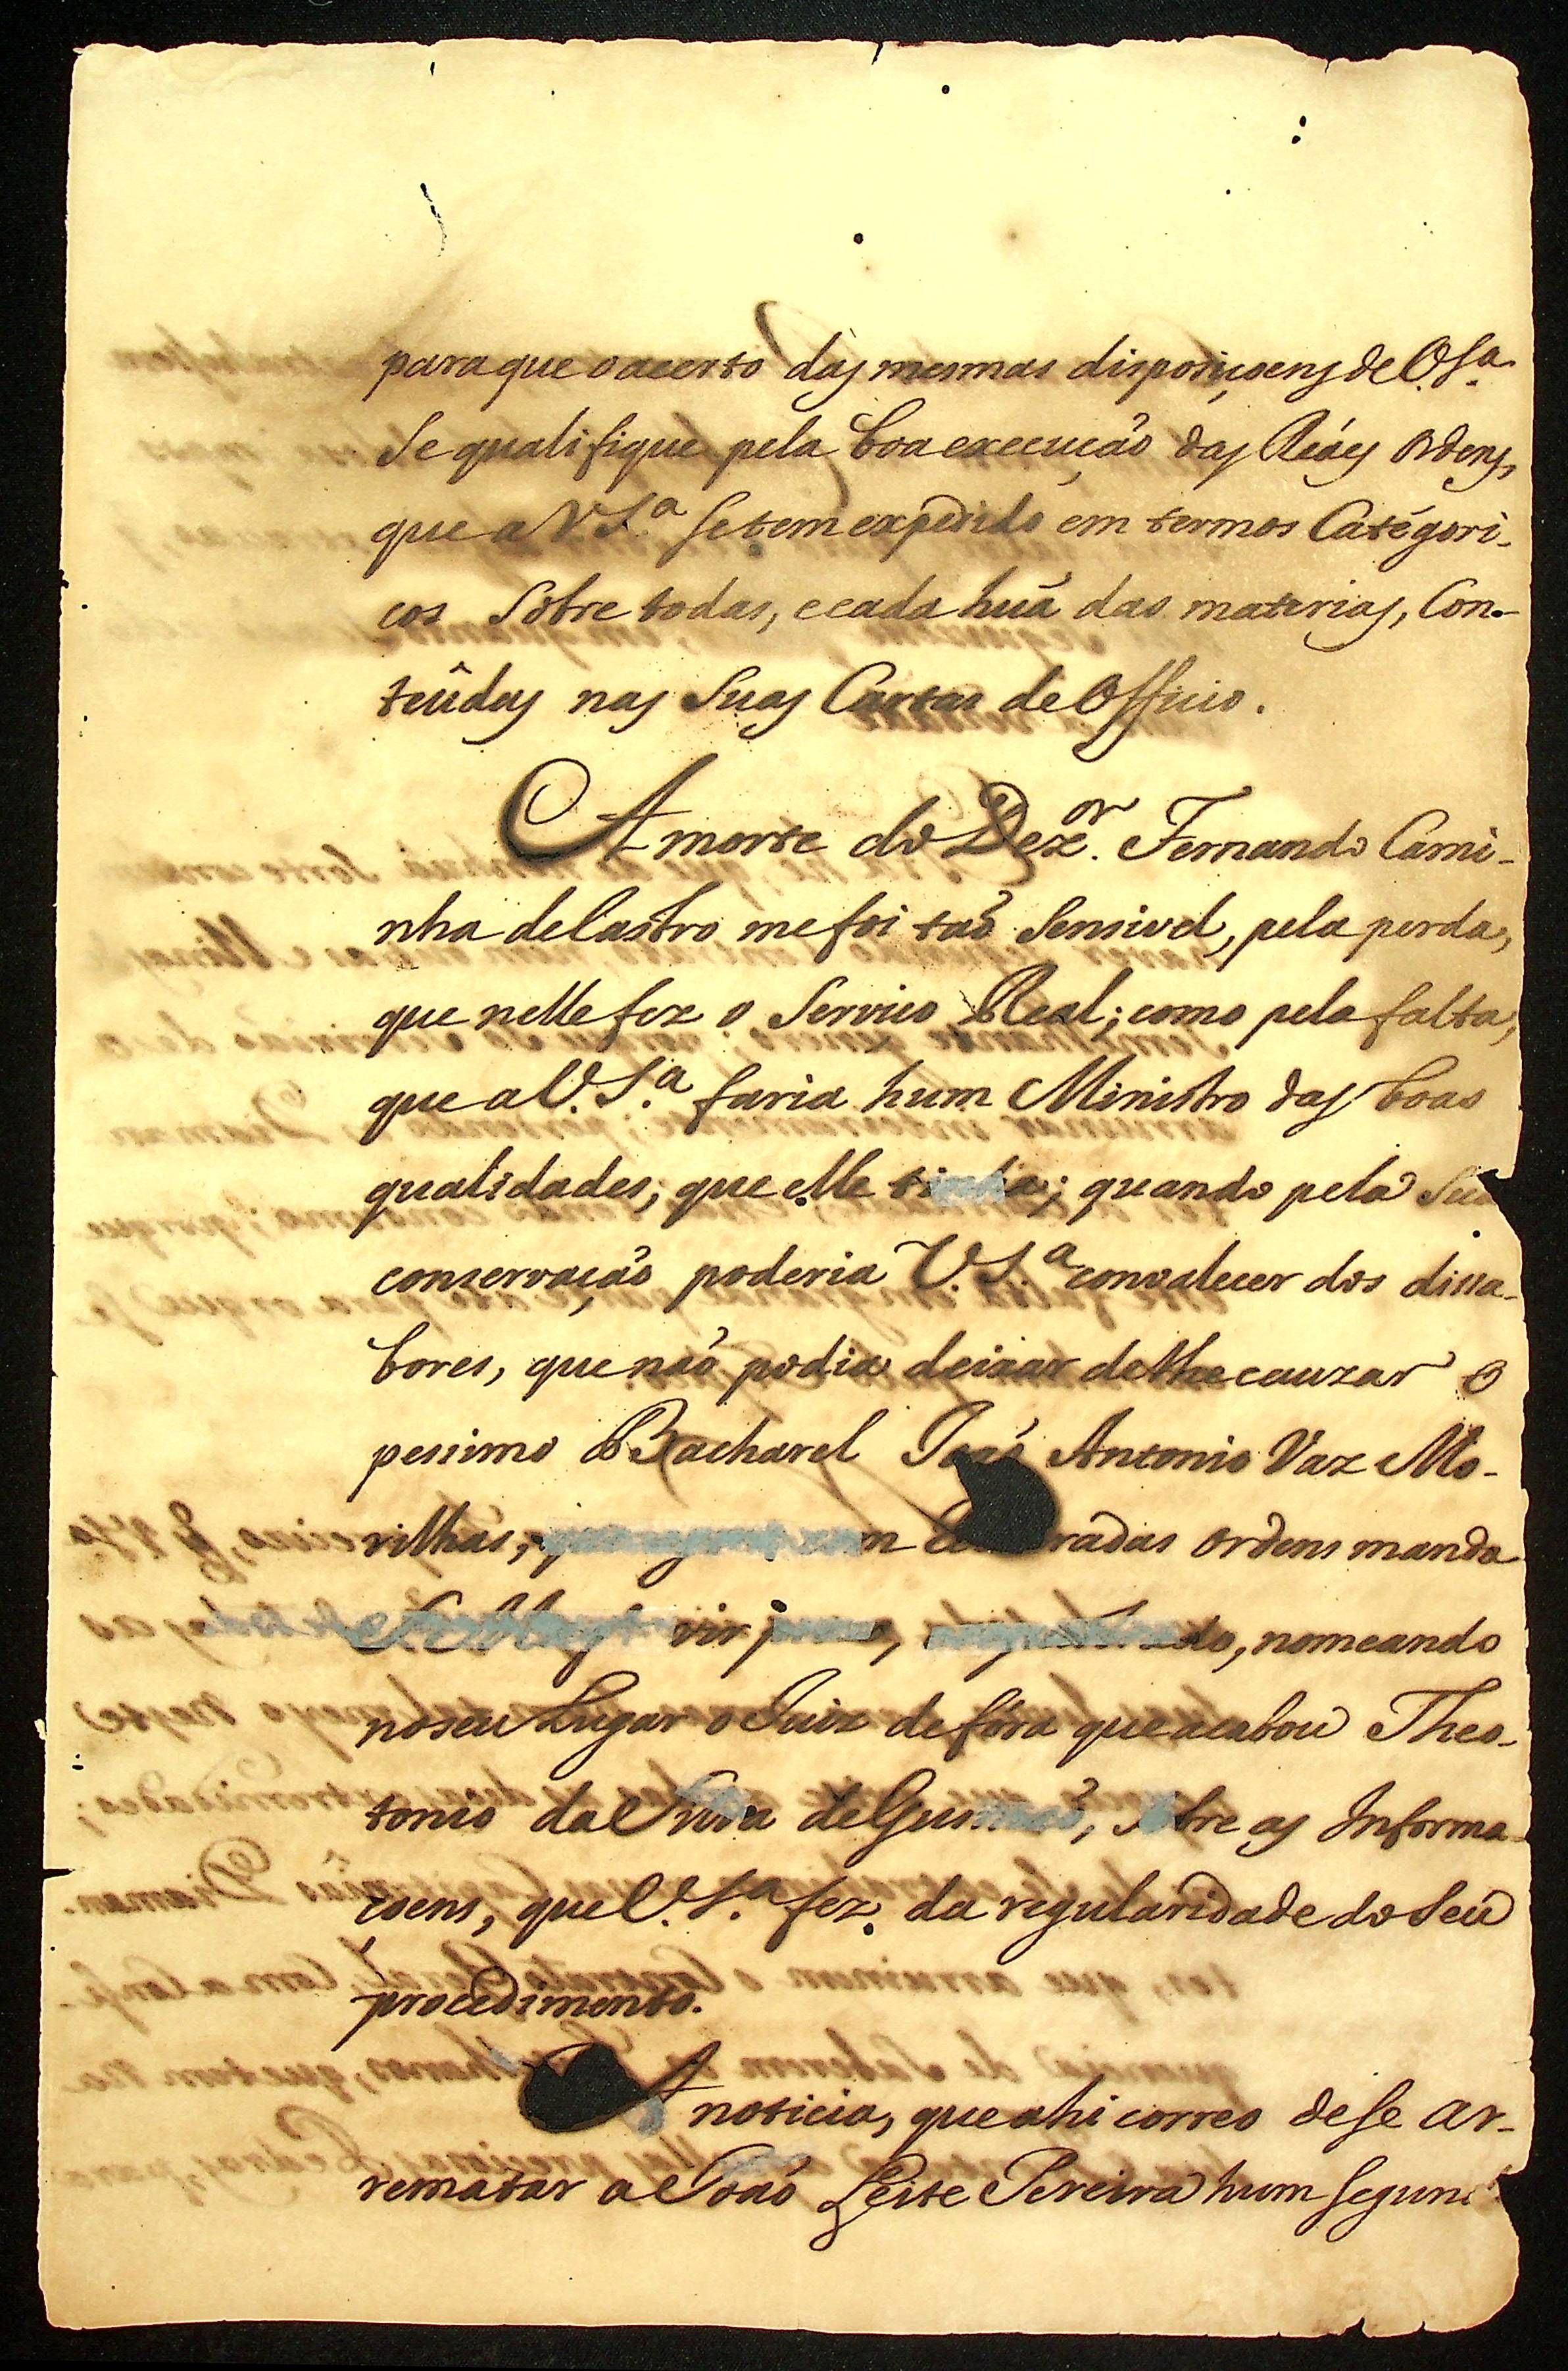 para que o acerto das mesmas disposiçoens de V.Sa.
Se qualifique pela boa execução das Reáes Ordens,
que a V.S.a se tem expedido em termos Catégori-
cos Sobre todas, e cada huã das materias, Con-
teûdas nas Suas Cartas de Officio.
A morte do Dez.or Fernando Cami-
nha de Castro me foi taõ Sensivel, pela perda,
que nelle fez o Servico Real; como pela falta,
que a V.S.a faria hum Ministro das boas
qualidades, que elle tinha; quando pela Sua
conservaçaõ poderia V.S.a convalecer dos dissa-
bores, que naõ podia deixar de lhe cauzar o
pessimo Bacharel Joaõ Antonio Vaz Mo-
rilhas, radas ordens manda
vir , nomeando
no seu Lugar o Juiz de fóra que acabou Theo-
tonio da Silva de Gusmaõ, sobre as Informa-
çoens, que V.S.a fez da regularidade do Seu
procedimento.
A noticia, que ahi correo de se ar-
rematar a Joaõ Leite Pereira hum Segun